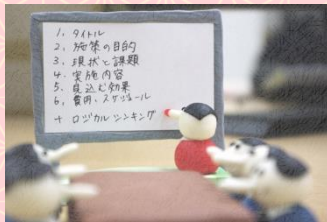 1. タイトル
2. 施策の目的
3. 現状と課題
4. 実施内容
5. 見込む効果
6. 費用、スケジュール
+ ロジカルシンキング